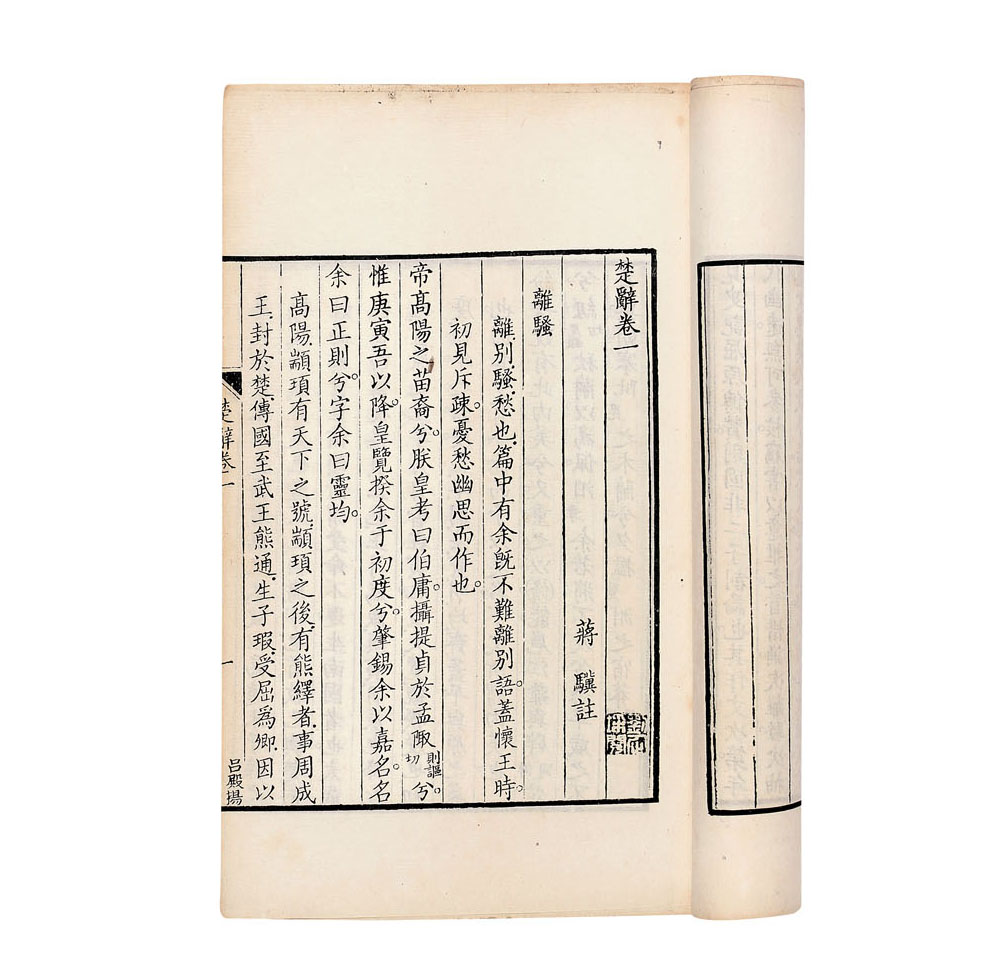 楚辭卷一
蔣驥註
離騷
離別騷愁也篇中有余旣不難離別語。蓋懷王時。
初見斥疎。憂愁幽思而作也。
帝髙陽之苗裔兮。朕皇考曰伯庸。攝提貞於孟陬則謳切兮。
惟庚寅吾以降。皇覽揆余于初度兮。肇錫余以嘉名。名
余曰正則兮。字余曰靈均。
髙陽顓頊有天下之號顓頊之後有熊繹者事周成
王封於楚傳國至武王熊通生子瑕受屈為卿因以
楚辭卷一
一
呂殿揚